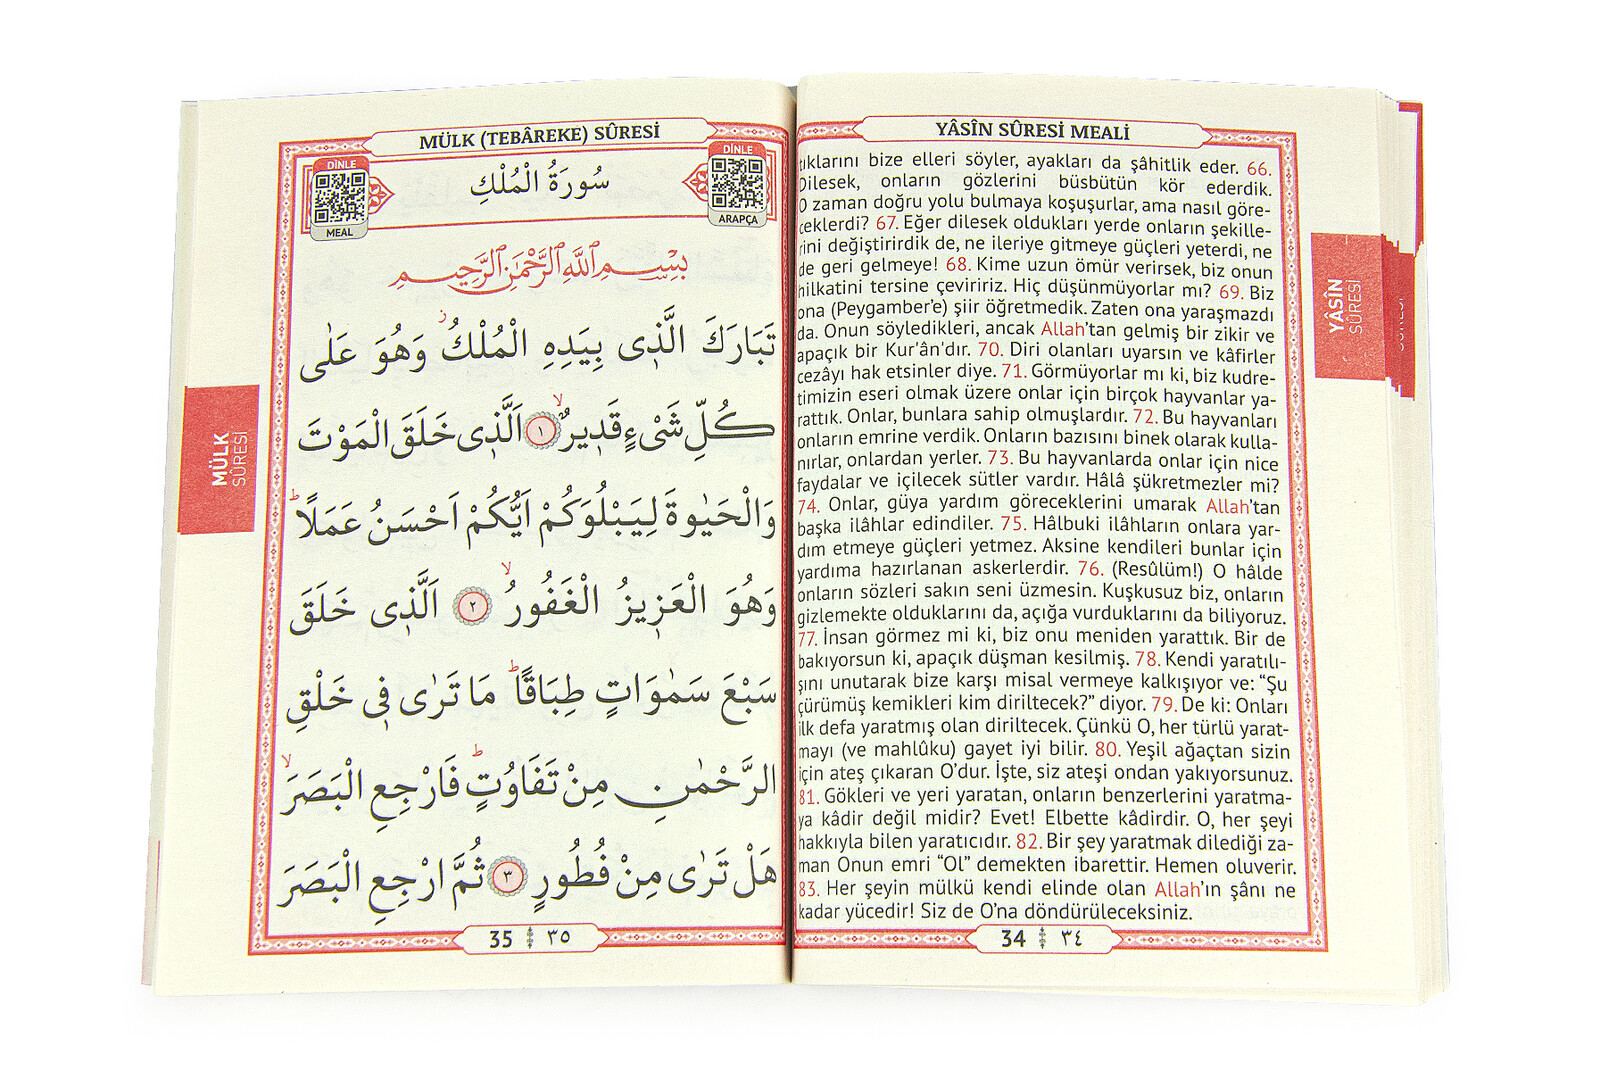 YÂSÎN SÛRESİ MEALİ
tıklarını bize elleri söyler, ayakları da şâhitlik eder. 66.
Dilesek, onların gözlerini büsbütün kör ederdik.
O zaman doğru yolu bulmaya koşuşurlar, ama nasıl göre-
ceklerdi? 67. Eğer dilesek oldukları yerde onların şekille-
rini değiştirirdik de, ne ileriye gitmeye güçleri yeterdi, ne
de geri gelmeye! 68. Kime uzun ömür verirsek, biz onun
hilkatini tersine çeviririz. Hiç düşünmüyorlar mı? 69. Biz
ona (Peygamber’e) şiir öğretmedik. Zaten ona yaraşmazdı
da. Onun söyledikleri, ancak Allah’tan gelmiş bir zikir ve
apaçık bir Kur'ân'dır. 70. Diri olanları uyarsın ve kâfirler
cezâyı hak etsinler diye. 71. Görmüyorlar mı ki, biz kudre-
timizin eseri olmak üzere onlar için birçok hayvanlar ya-
rattık. Onlar, bunlara sahip olmuşlardır. 72. Bu hayvanları
onların emrine verdik. Onların bazısını binek olarak kulla-
nırlar, onlardan yerler. 73. Bu hayvanlarda onlar için nice
faydalar ve içilecek sütler vardır. Hâlâ şükretmezler mi?
74. Onlar, güya yardım göreceklerini umarak Allah’tan
başka ilâhlar edindiler. 75. Hâlbuki ilâhların onlara yar-
dım etmeye güçleri yetmez. Aksine kendileri bunlar için
yardıma hazırlanan askerlerdir. 76. (Resûlüm!) O hâlde
onların sözleri sakın seni üzmesin. Kuşkusuz biz, onların
gizlemekte olduklarını da, açığa vurduklarını da biliyoruz.
77. İnsan görmez mi ki, biz onu meniden yarattık. Bir de
bakıyorsun ki, apaçık düşman kesilmiş. 78. Kendi yaratılı-
şını unutarak bize karşı misal vermeye kalkışıyor ve: “Şu
çürümüş kemikleri kim diriltecek?” diyor. 79. De ki: Onları
ilk defa yaratmış olan diriltecek. Çünkü O, her türlü yarat-
mayı (ve mahlûku) gayet iyi bilir. 80. Yeşil ağaçtan sizin
için ateş çıkaran O’dur. İşte, siz ateşi ondan yakıyorsunuz.
81. Gökleri ve yeri yaratan, onların benzerlerini yaratma-
ya kâdir değil midir? Evet! Elbette kâdirdir. O, her şeyi
hakkıyla bilen yaratıcıdır. 82. Bir şey yaratmak dilediği za-
man Onun emri “Ol” demekten ibarettir. Hemen oluverir.
83. Her şeyin mülkü kendi elinde olan Allah’ın şânı ne
kadar yücedir! Siz de O’na döndürüleceksiniz.
34 ٣٤
YÂSÎN
SÛRESİ
MÜLK (TEBÂREKE) SÛRESİ
DİNLE
MEAL
سُورَةُ الْمُلْكِ
DİNLE
ARAPÇA
بِسْمِ اللّٰهِ الرَّحْمٰنِ الرَّحِيمِ
تَبَارَكَ الَّذ۪ى بِيَدِهِ الْمُلْكُۘ وَهُوَ عَلٰى
كُلِّ شَىْءٍ قَد۪يرٌۙ ١ اَلَّذ۪ى خَلَقَ الْمَوْتَ
وَالْحَيٰوةَ لِيَبْلُوَكُمْ اَيُّكُمْ اَحْسَنُ عَمَلًاؕ
وَهُوَ الْعَز۪يزُ الْغَفُورُۙ ٢ اَلَّذ۪ى خَلَقَ
سَبْعَ سَمٰوَاتٍ طِبَاقًاؕ مَا تَرٰى ف۪ى خَلْقِ
الرَّحْمٰنِ مِنْ تَفَاوُتٍؕ فَارْجِعِ الْبَصَرَۙ
هَلْ تَرٰى مِنْ فُطُورٍ ٣ ثُمَّ ارْجِعِ الْبَصَرَ
35 ٣٥
MÜLK
SÛRESİ